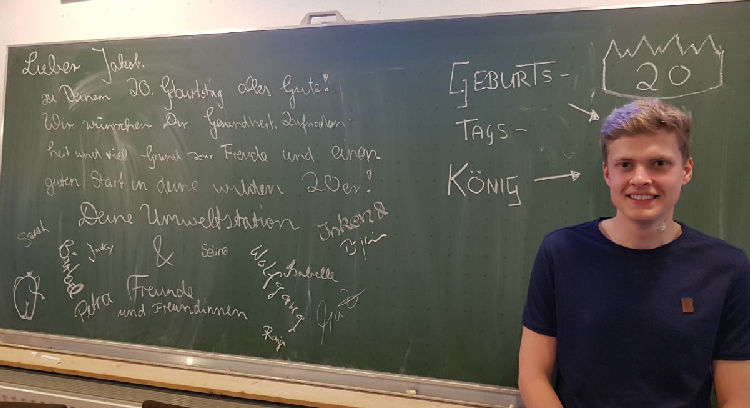 Lieber Jakob,
zu Deinem 20. Geburtstag alles Gute!
Wir wünschen Dir Gesundheit, Zufrieden-
heit und viel Grund zur Freude und einen
guten Start in deine wilden 20er!
Deine Umweltstation
&
Freunde
und Freundinnen
Sarah
Jacky
Selina
Petra
Wolfgang
Annabelle
GEBURTS-
TAGS-
KÖNIG
20